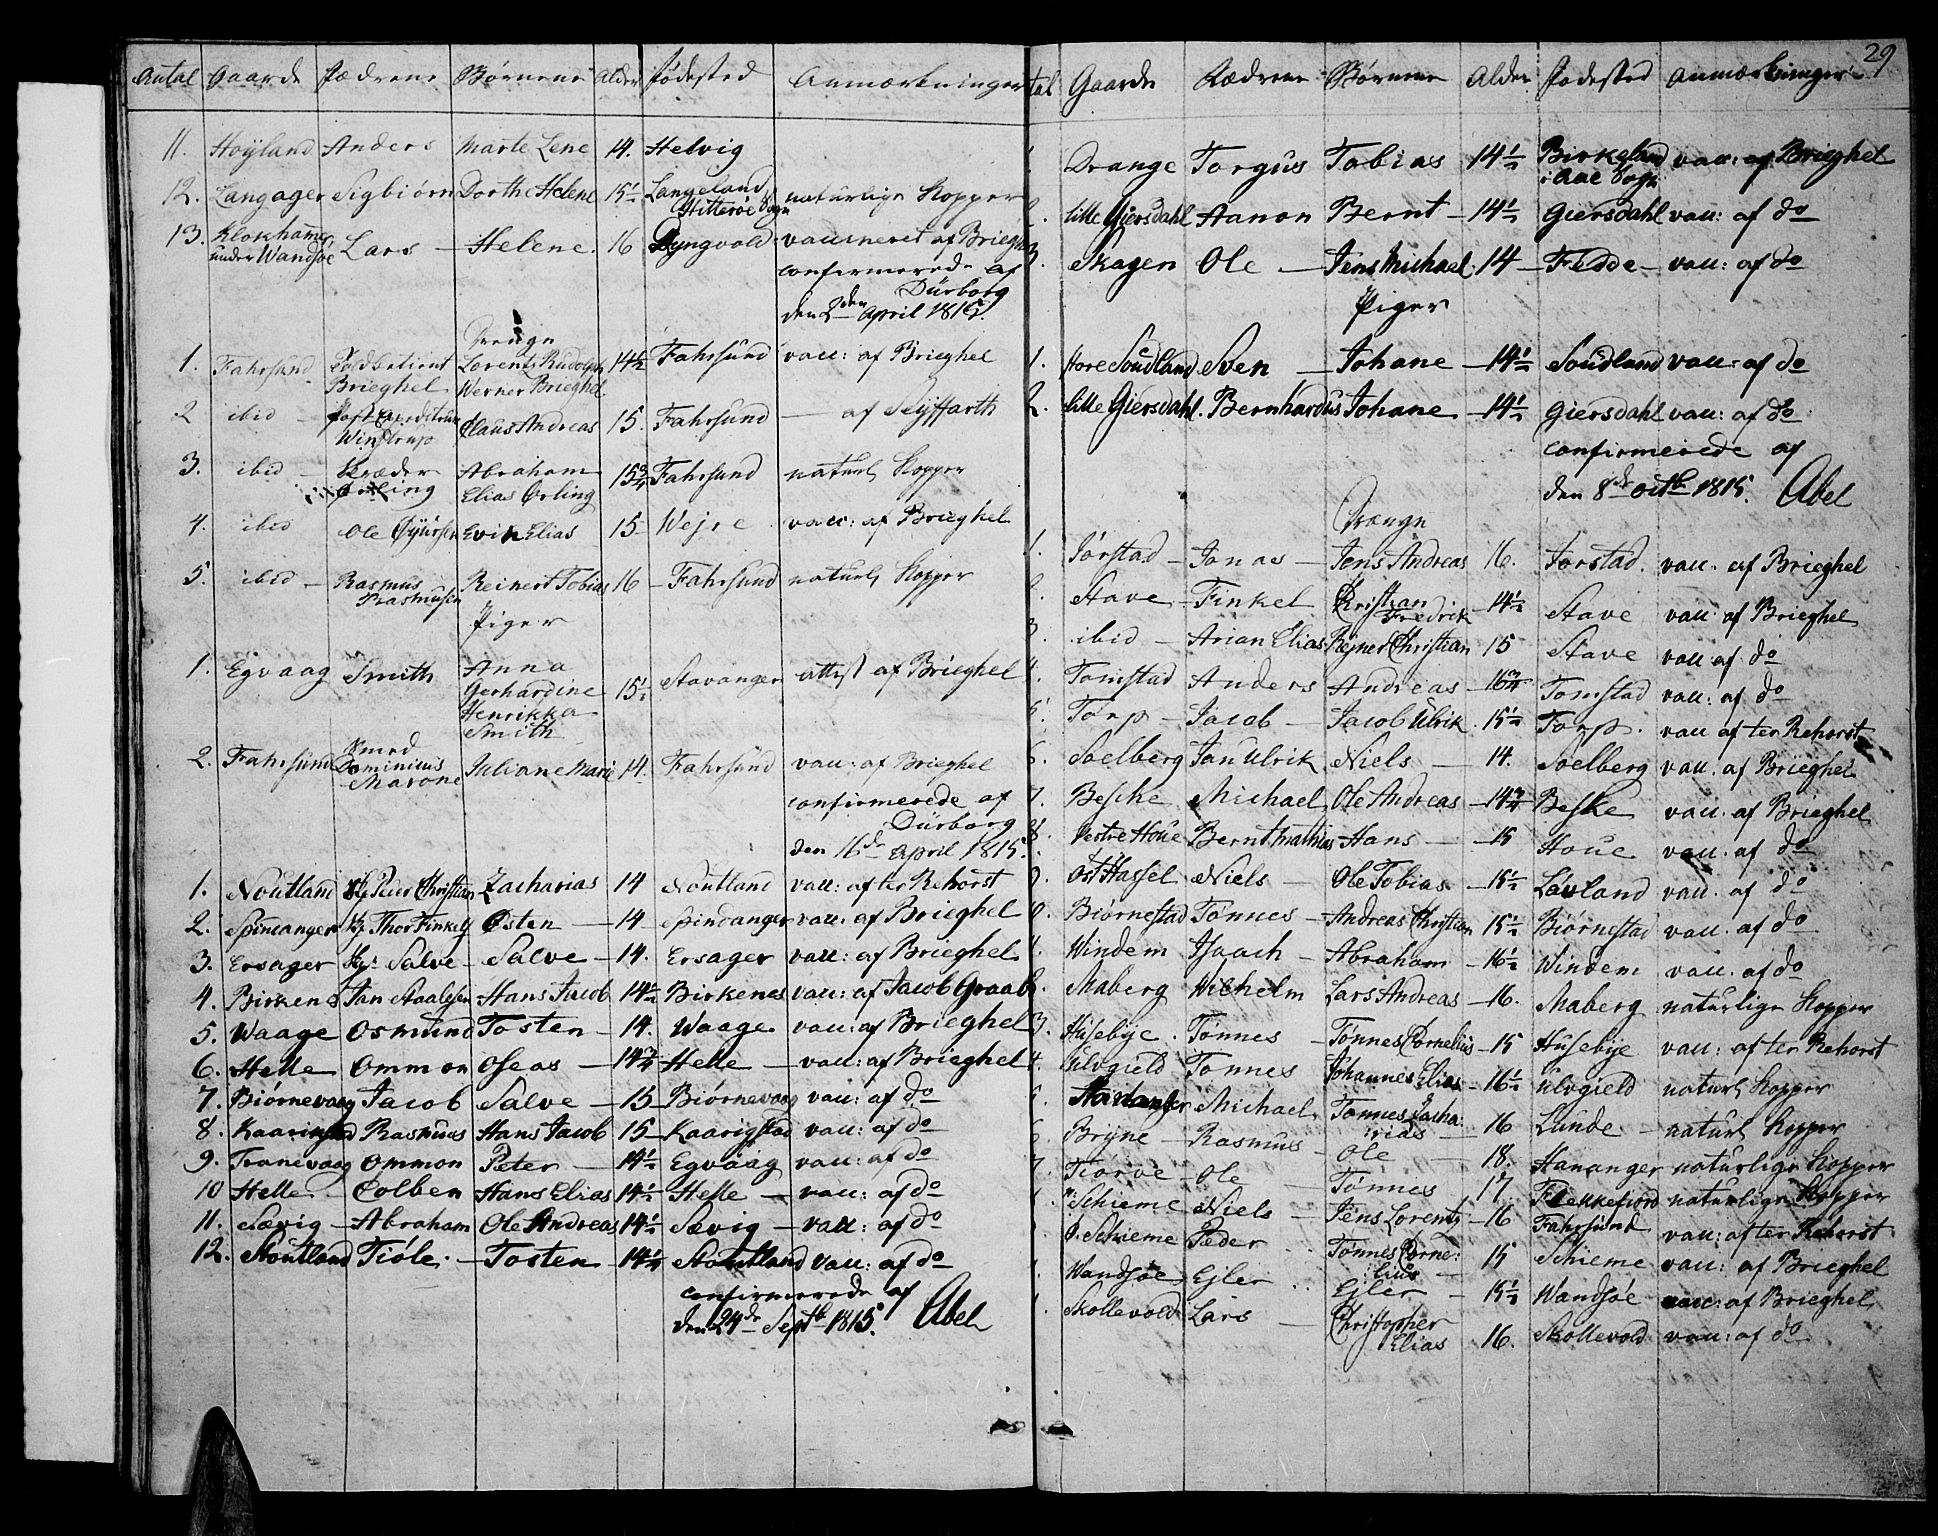 Antal Gaarde Fædrene Børnene Alder Fødested Anmærkninger
11. Høyland Anders Marte Lene 14. Helvig
12. Langager Sigbiørn Dorthe Helene 15½ Langeland Hitterøe Sogn naturlige Kopper
13. Klokhamr under Wandsøe Lars – Helene. 16 Lyngvold vaccineret af Brieghel
confirmerede af
Dürborg
den 2den April 1815.
Drenge
1. Fahrsund Brieghel Lorentz Rudolph Werner Brieghel 14½ Fahrsund vacc: af Brieghel
2 ibid – Winstrup Claus Andreas 15. Fahrsund – af Seyffarth
3. ibid – Skræder Ørling Abraham Elias Ørling 15¾ Fahrsund naturl Kopper
4. ibid Ole Evin Elias 15 Wejre vacc: af Brieghel
5. ibid – Rasmus Rasmusen Reinert Tobias 16 – Fahrsund naturl Kopper
Piger
1. Egvaag Smith Anna Gerhardine Henrikka Smith 15½ Stavanger attest af Brieghel
2. Fahrsund Dominicus Marone Juliane Marie 14. Fahrsund vacc: af Brieghel
confirmerede af
Dürborg
den 16de April 1815.
1. Noutland Peter Christian Zacharias 14 Noutland vacc: af ter Rehorst
2. Spindanger Thor Finkel Østen – 14 – Spindanger vacc: af Brieghel
3. Ersager Salve – Salve – 14. Ersager vacc: af Brieghel
4. Birkenes Jan Staalesen Hans Jacob 14½ Birkenes vacc: af Jacob Graab
5. Waage Osmund Tosten – 14. Waage vacc: af Brieghel
6. Helle Ommon Oseas – 14¾ Helle – vacc: af Brieghel
7. Biørnevaag Jacob Salve – 15 – Biørnevaag vacc: af do
8. Kaarigstad Rasmus Hans Jacob 15 – Kaarigstad vacc: af do
9. Tranevaag Ommon Peter – 14½ Egvaag vacc: af do
10 Helle – Colben Hans Elias 14½ Helle – vacc: af do
11. Sævig – Abraham Ole Andreas 14½ Sævig – vacc: af do
12. Stoutland Tiøle. – Tosten – 14¼ Stoutland vacc: af do
confirmerede af
den 24de Septb 1815. Abel
29
tal Gaarde Fædrene Børnene Alder Fødested Anmærkninger
Drange Torgus Tobias 14½ Birkeland i Aae Sogn vacc: af Brieghel
Lille Giersdahl Aanon Bernt – 14½ Giersdahl vacc: af do
3. Skagen Ole – Jens Michael 14 – Fedde – vacc: af do
Piger
1. Store Soudland Sven – Johane – 14½ Soudland vacc: af do
2. Lille Giersdahl. Bernhardus Johane – 14½ Giersdahl vacc: af do
confirmerede af
den 8de octb 1815. Abel
Drenge
1. Jørstad – Jonas – Jens Andreas 16. Jorstad. vacc: af Brieghel
2. Stave – Finkel Christian Fredrik 14½ Stave vacc: af Brieghel
3. ibid – Arian Elias Rejner Christian 15 Stave vacc af do
4. Tomstad Anders Andreas – 16¾ Tomstad vacc: af do
5. Torp – Jacob – Jacob Ulrik 15½ Torp. vacc af ter Rehorst
6. Soelberg Jan Ulrik Niels – 14. Soelberg vacc. af Brieghel
7. Beshe Michael Ole Andreas – 14¾ Beske vacc. af Brieghel
8. Vestre Houe Bernt Mathias Hans – 15 Houe vacc. af do
9. Øst Hassel Niels – Ole Tobias – 15½ Lovland vacc. af do
0. Biørnestad Tønnes – Andreas Christian 15½ Biørnestad vacc. af do
1. Windem Isaach – Abraham – 16½ Windem vacc. af do
2. Maberg Wilhelm Lars Andreas – 16. Maberg naturlige Kopper
3. Husebye. Tønnes – Tønnes Cornelius – 15 Husebye vacc: af ter Rehorst
4. Ulvgield Tonnes Johannes Elias – 16½ Ulvgield naturl Kopper
5. Michael Tonnes Zacharias – 16 Lunde – naturl Kopper
6. Bryne – Rasmus – Ole – 18. Hananger naturlige Kopper
7. Tiørve – Ole – Tønnes 17. Flekkefiord naturlige Kopper
Schieme Niels – Jens Lorentz – 16 Fahrsund vacc: af ter Rehorst
Ø. Schieme Peder Tønnes Cornelius – 15 Schieme vacc: af Brieghel
Wandsøe Ejler Ejler – 15½ Wandsøe vacc: af Brieghel
Skollevold Lars – Christopher Elias 16. Skollevold vacc: af do